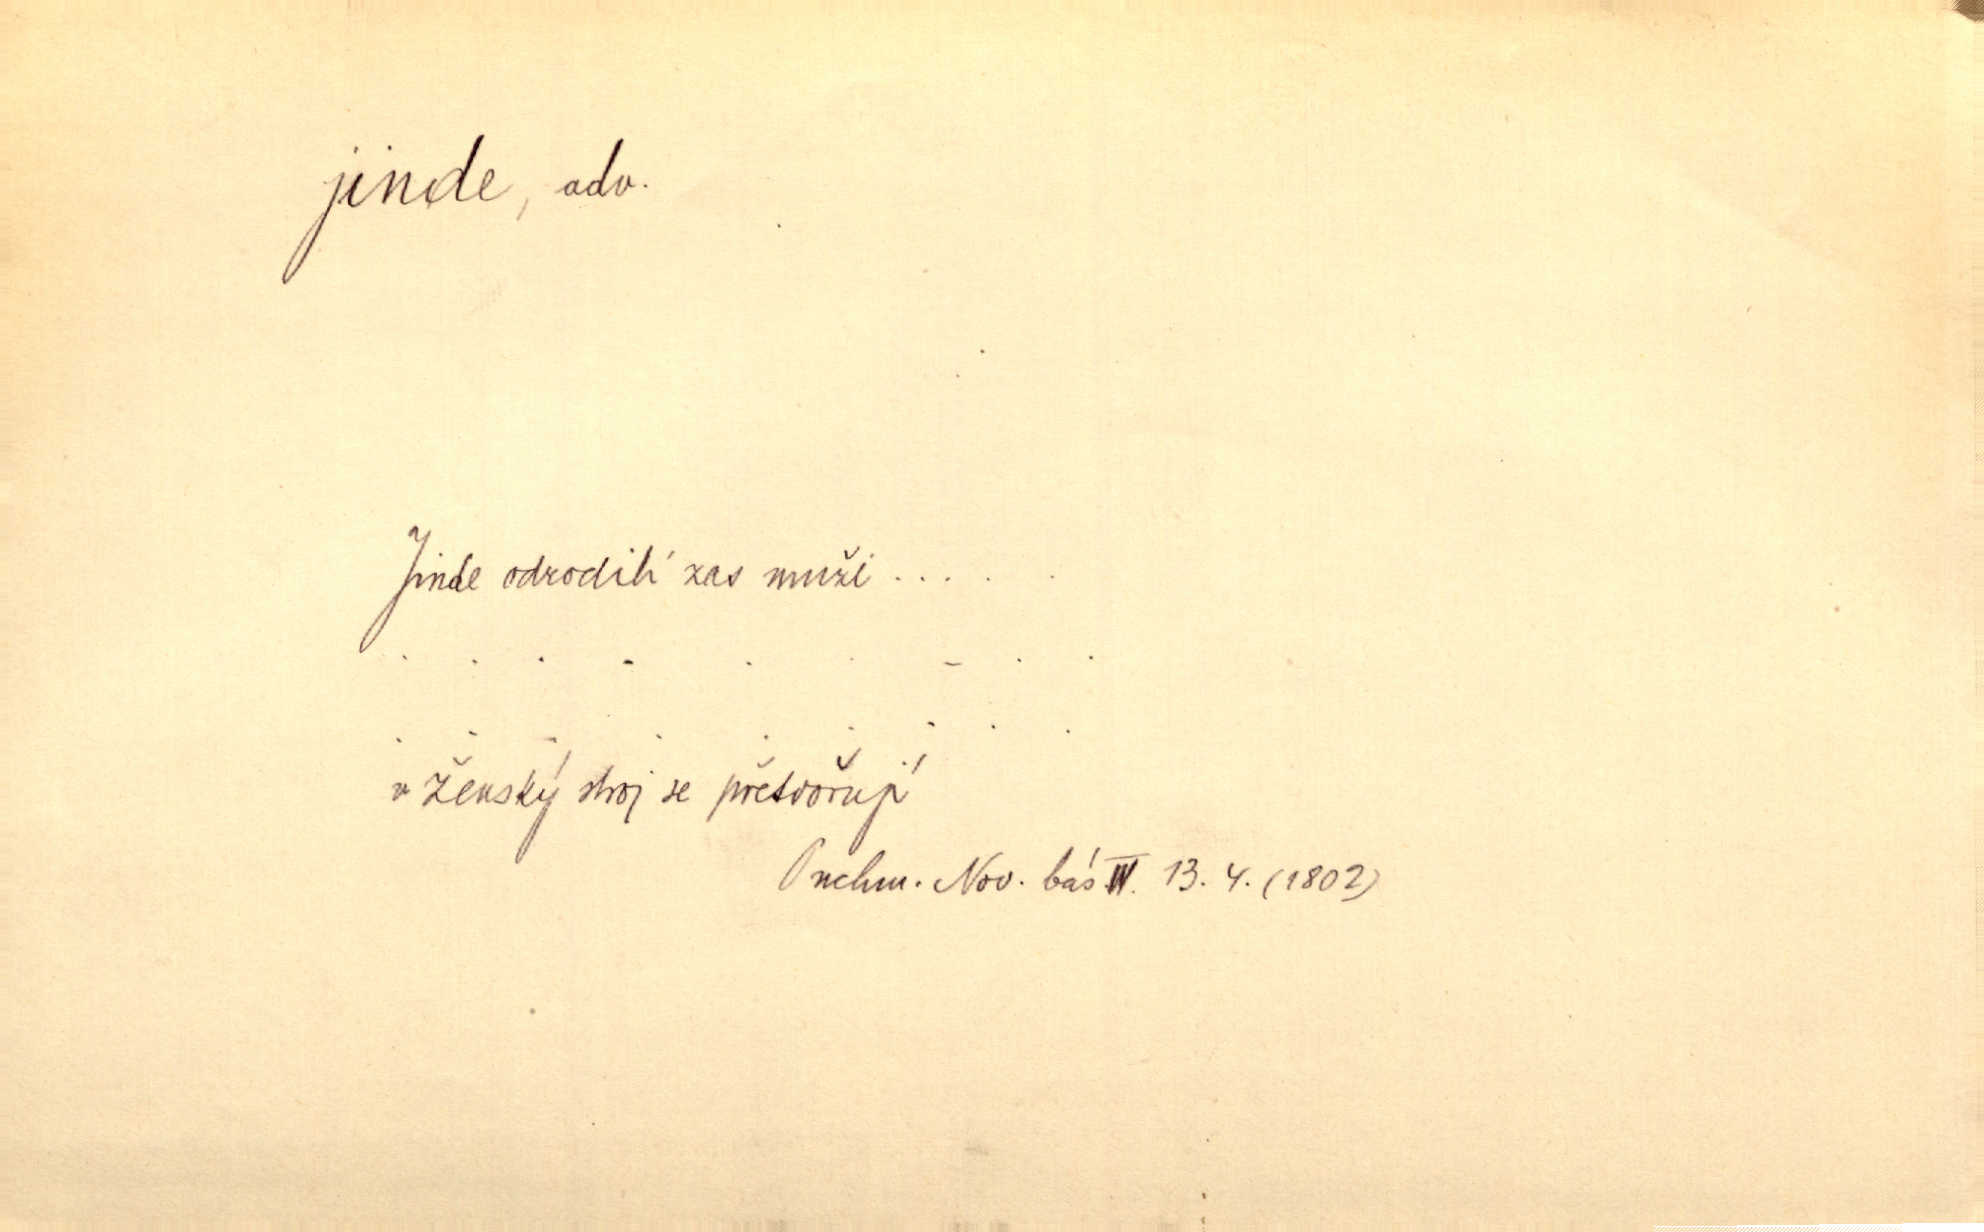 jinde, adv.
Jinde odrodilí zas muži . . . . .
. . . . . . . . .
. . . . . . . . .
v ženský stroj se přetvořují
Puchm. Nov. bás IV. 13. 4. (1802)